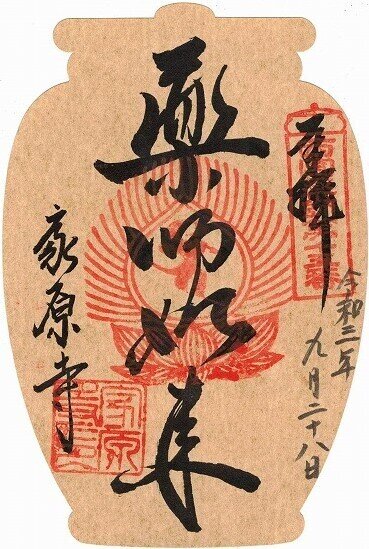 奉拝
令和三年
九月二十八日
薬師如来
家原寺